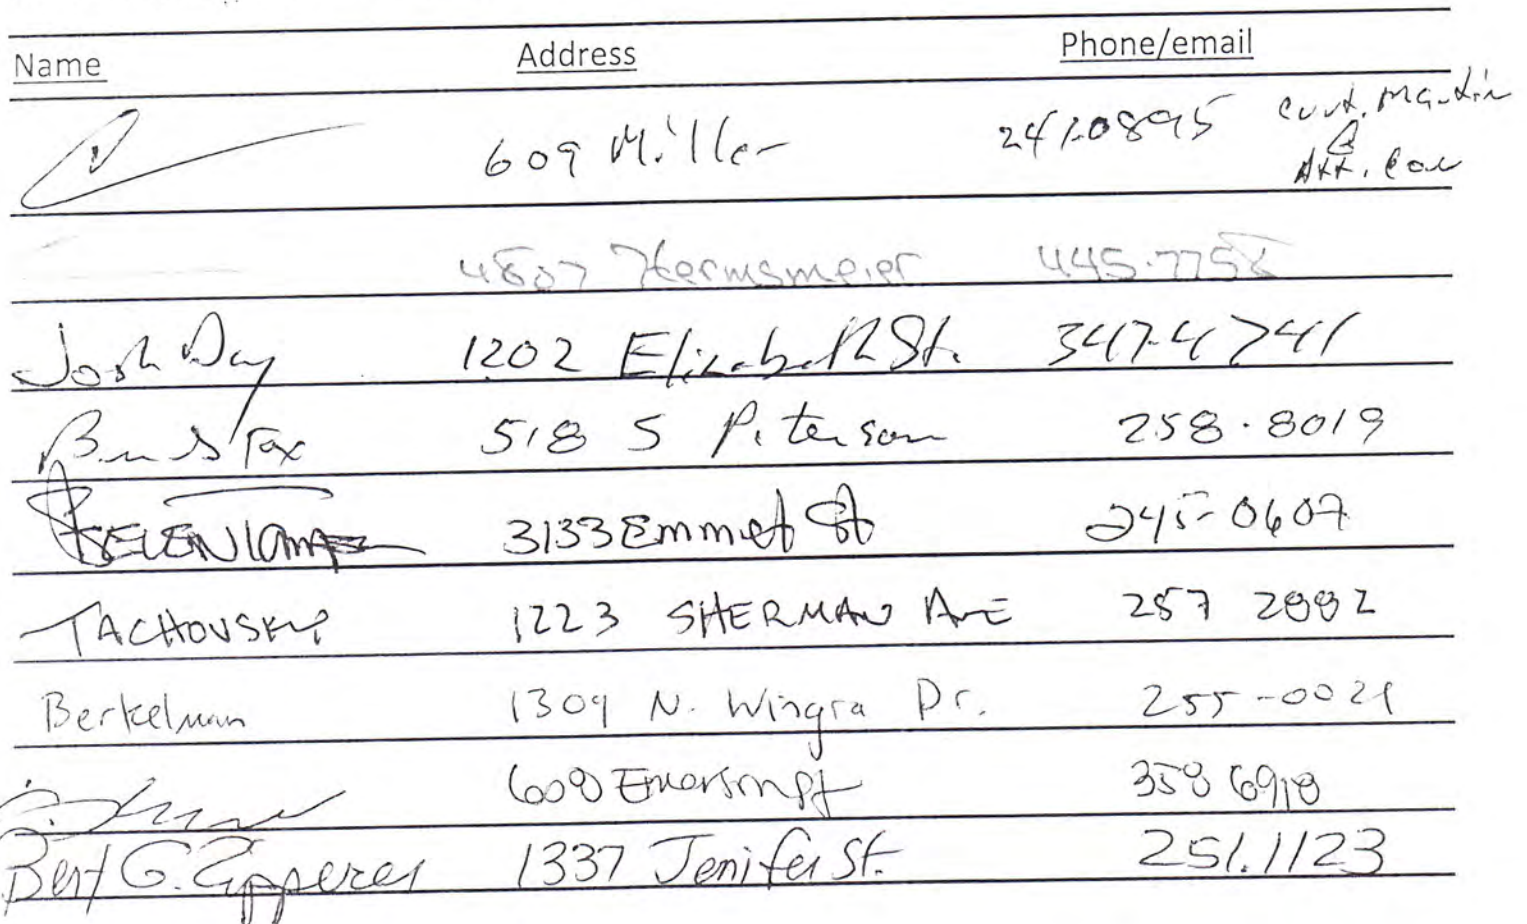 Name Address Phone/email
609 Miller 241-0895 Curt. Martin
@
Att. Com
4807 Hermsmeier 445-7758
Josh Day 1202 Elizabeth St. 347-4741
Fox 518 S Peterson 258-8019
3133 Emmet St 245-0607
TACHOVSKY 1223 SHERMAN AVE 257 2882
Berkelman 1309 N. Wingra Dr. 255-0021
608 358 6918
Bert G. Zipperer 1337 Jenifer St. 251.1123